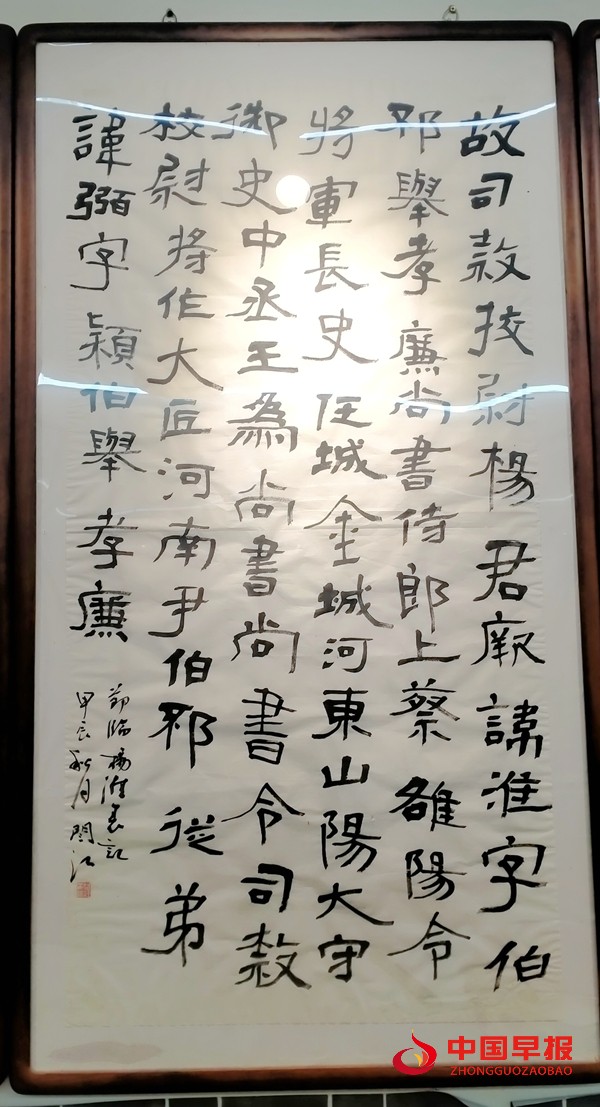 故司隸挍尉楊君厥諱淮字伯
邳舉孝廉尚書侍郎上蔡雒陽令
將軍長史任城金城河東山陽大守
御史中丞王爲尚書尚書令司隸
校尉將作大匠河南尹伯邳從弟
諱弼字穎伯舉孝廉
節臨楊淮表記
甲辰秋月閆江
中国早报
ZHONGGUOZAOBAO